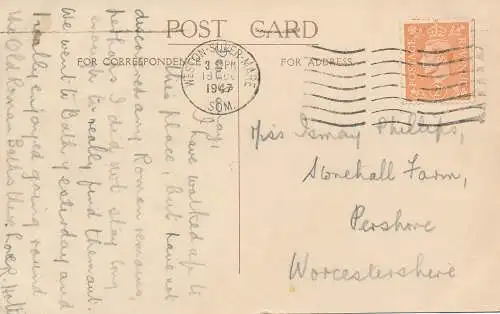 POST CARD
FOR CORRESPONDENCE
FOR ADDRESS.
WESTON-SUPER-MARE
1947
SOM.
POSTAGE
I have walked up to
this place, but have not
discovered any Roman remains,
perhaps I did not stay long
enough to really find them out.
We went to Bath yesterday and
really enjoyed going round
the Old Roman Baths they
Miss Ismay Phillips,
Stonehall Farm,
Pershore
Worcestershire